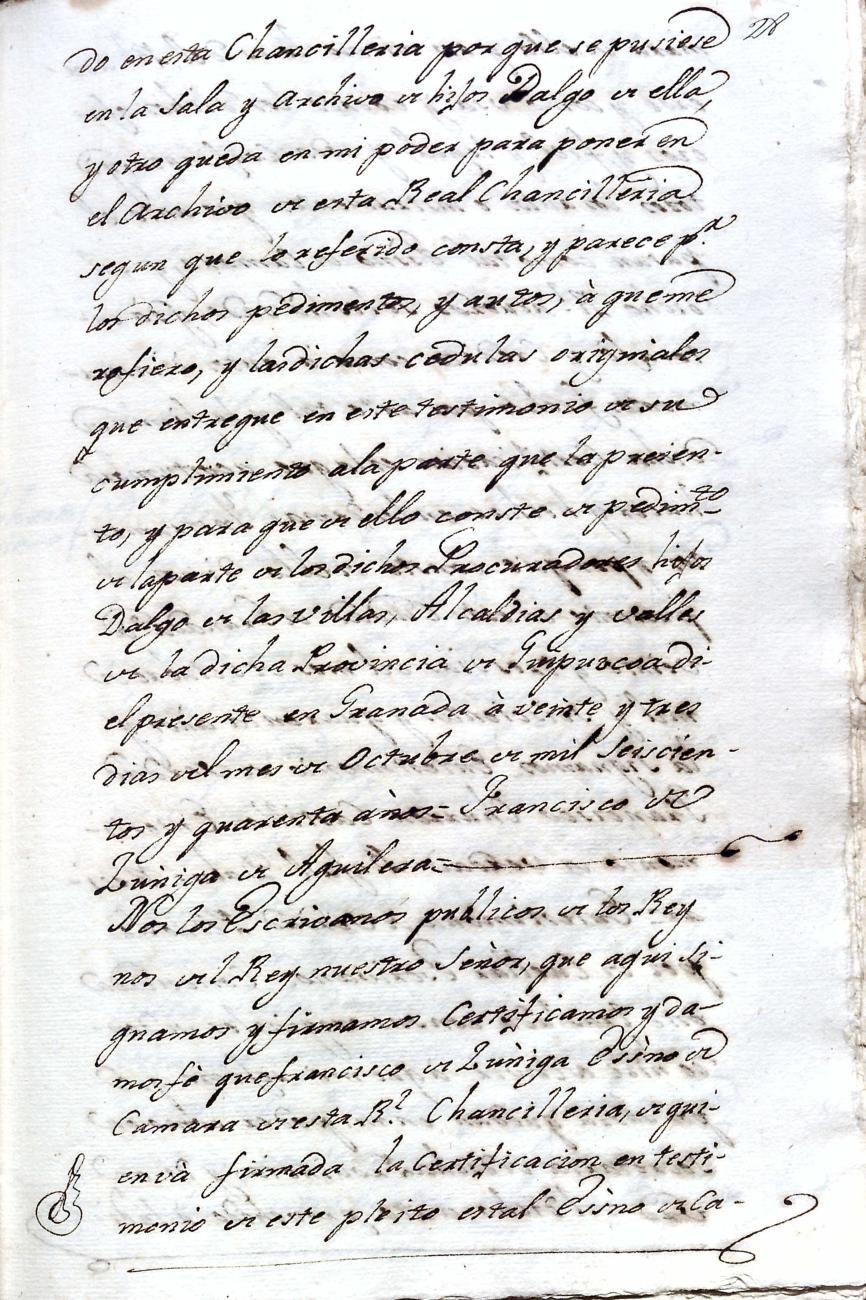 28
do en esta Chancilleria por que se pusiese
en la Sala y Archivo de hijos Dalgo de ella,
y otro queda en mi poder para poner en
el Archivo de esta Real Chancilleria
segun que lo referido consta, y parece pr.
los dichos pedimentos, y autos, à que me
refiero, y las dichas cedulas originales
que entregue en este testimonio de su
cumplimiento a la parte que la presen-
to, y para que de ello conste de pedimto.
de la parte de los dichos Procuradores hijos
Dalgo de las Villas, Alcaldias y valles
de la dicha Provincia de Guipuzcoa di
el presente en Granada à veinte y tres
dias del mes de Octubre de mil Seiscien-
tos y quarenta años= Francisco de
Zuniga de Aguilera=
Nos los Escrivanos publicos de los Rey
nos del Rey nuestro Señor, que aqui si-
gnamos y firmamos Certificamos y da-
mos fè que francisco de Zuniga Essno de
Camara de esta Rl. Chancilleria, de qui-
en và firmada la Certificacion en testi-
monio de este pleito es tal Essno de Ca-